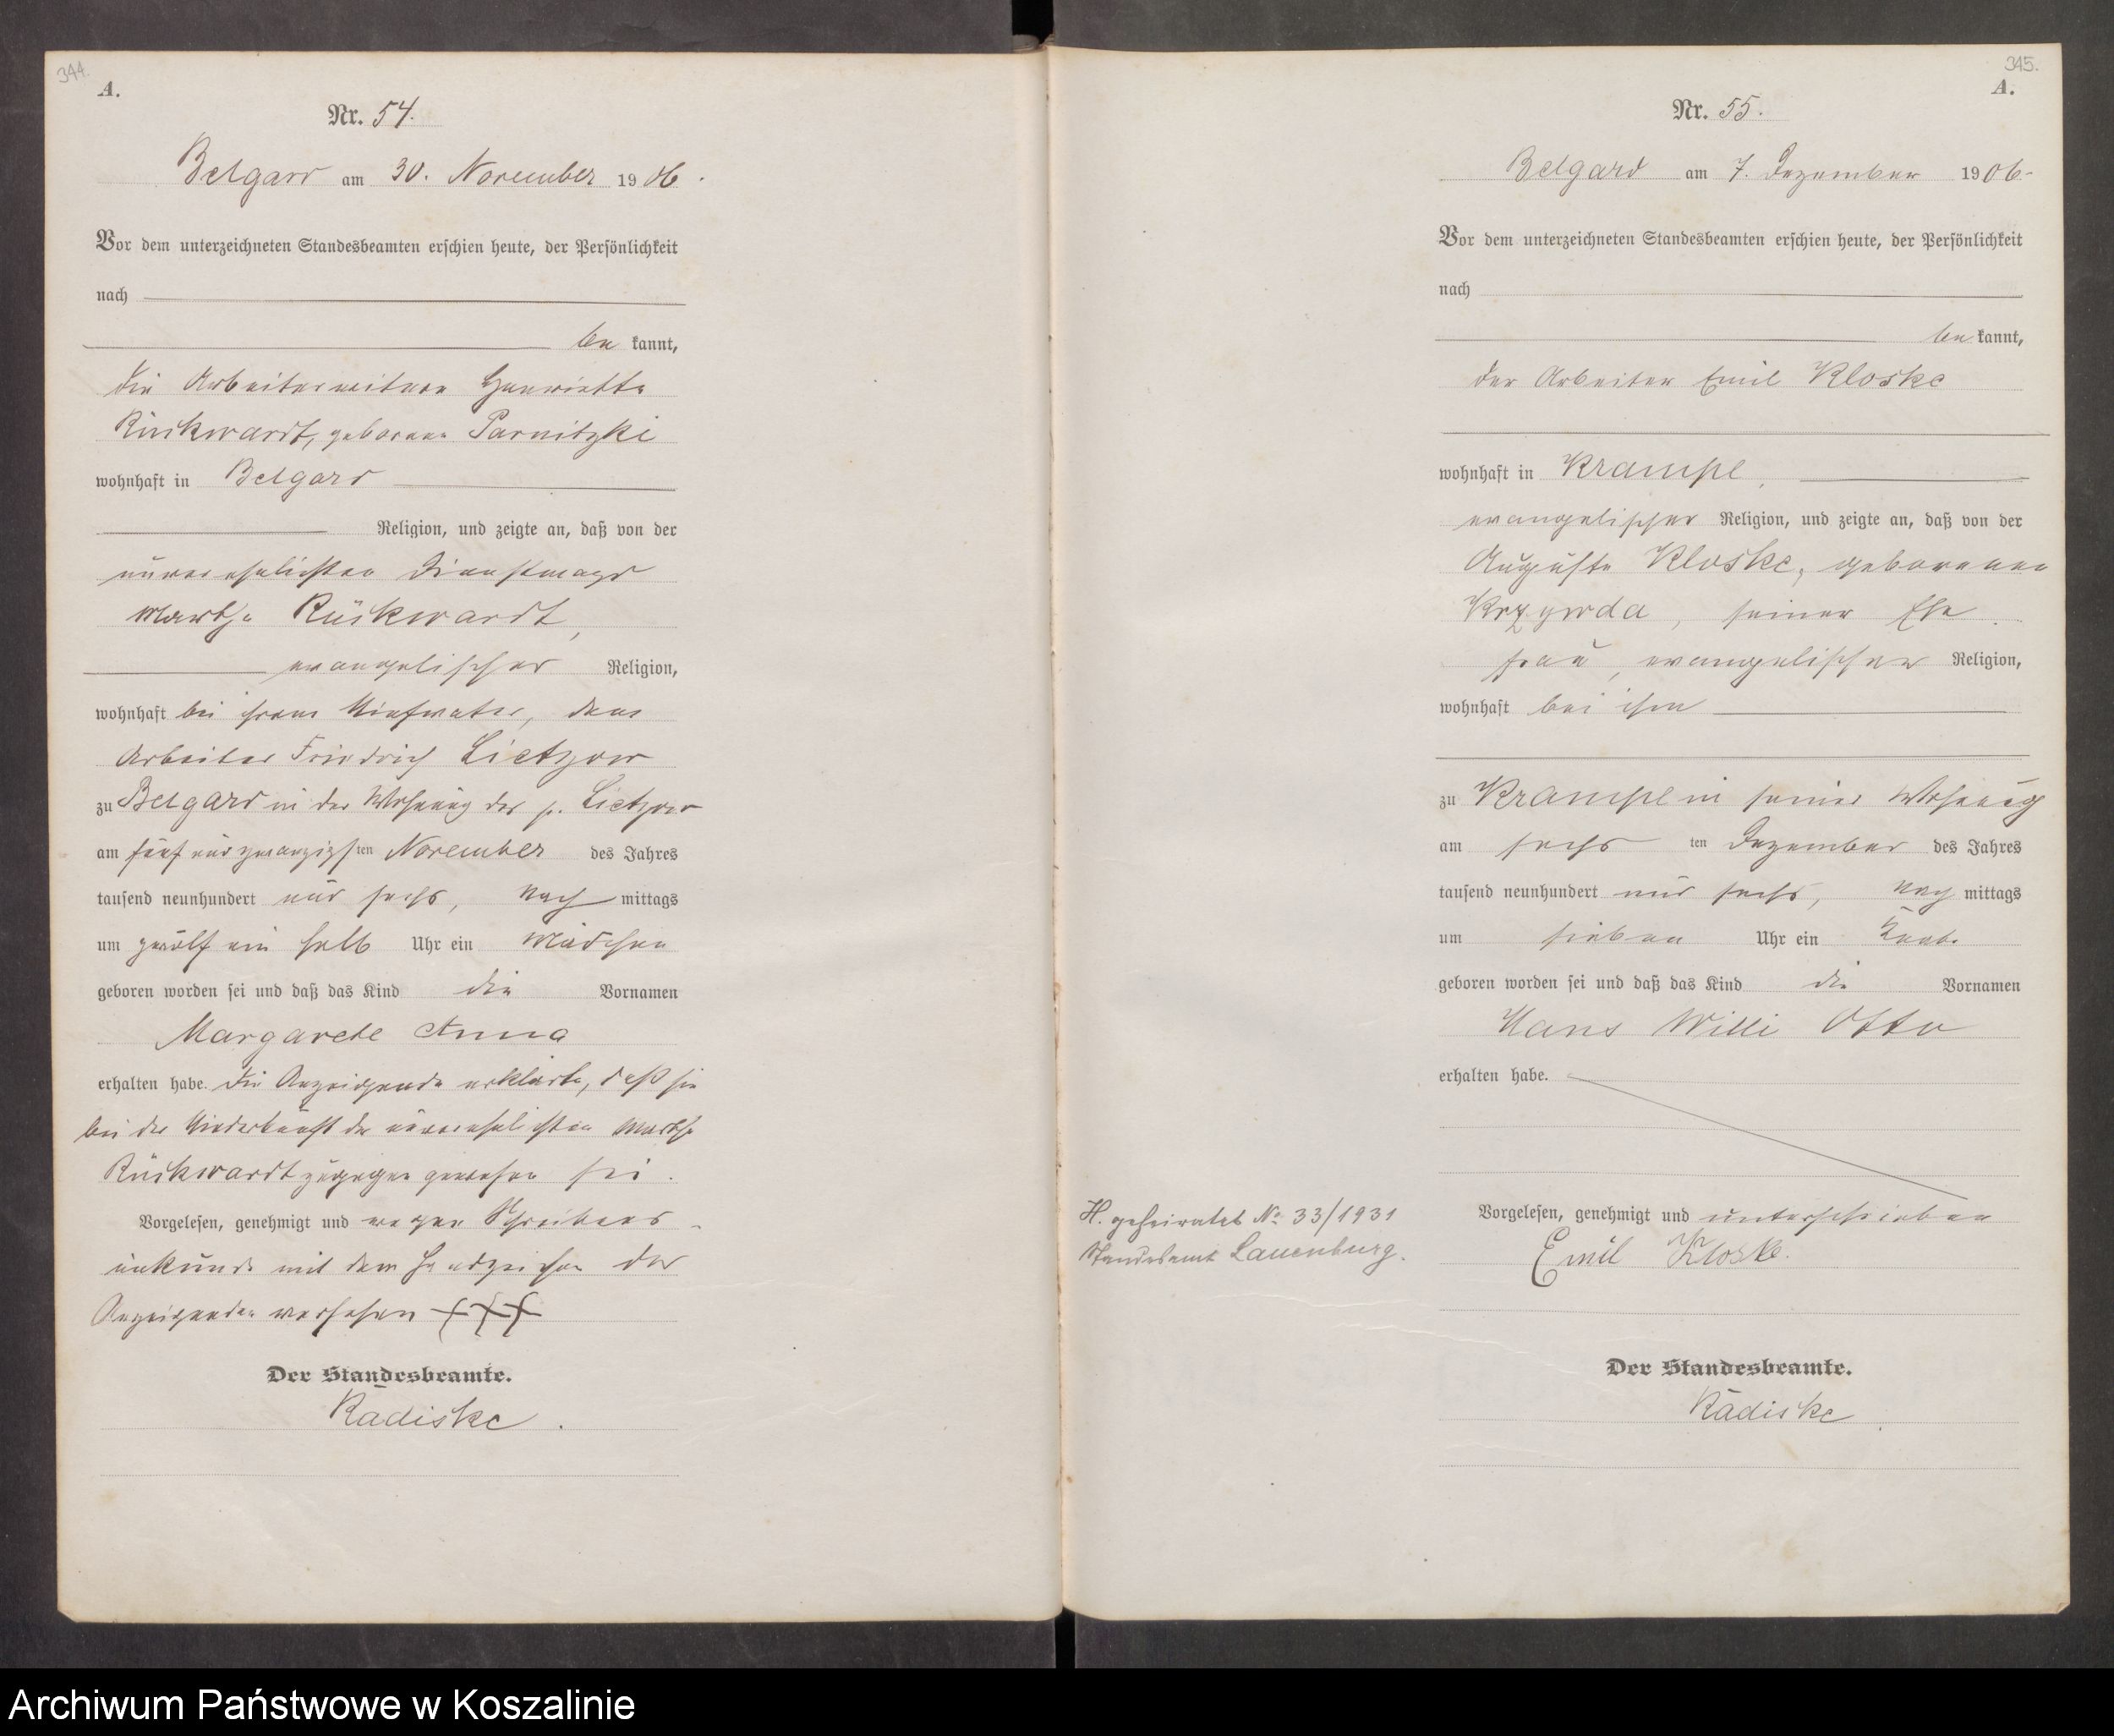 344.
A.
Nr. 54.
Belgard am 30. November 1906.
Vor dem unterzeichneten Standesbeamten erschien heute, der Persönlichkeit
nach
be kannt,
die Arbeiterwitwe Henriette
Rückwardt, geborene Parnitzki
wohnhaft in Belgard
Religion, und zeigte an, daß von der
unverehelichten Dienstmagd
Martha Rückwardt,
evangelischer Religion,
wohnhaft bei ihrem Stiefvater, dem
Arbeiter Friedrich Lietzow
zu Belgard in der Wohnung des p. Lietzow
am fünf und zwanzigsten November des Jahres
tausend neunhundert und sechs, nach mittags
um zwölf ein halb Uhr ein Mädchen
geboren worden sei und daß das Kind die Vornamen
Margarete Anna
erhalten habe. Die Anzeigende erklärte, daß sie
bei der Niederkunft der unverehelichten Martha
Rückwardt zugegen gewesen sei.
Vorgelesen, genehmigt und wegen Schreibens-
unkunde mit dem Handzeichen der
Anzeigenden versehen +++
Der Standesbeamte.
Radiske.
345.
A.
Nr. 55.
Belgard am 7. Dezember 1906.
Vor dem unterzeichneten Standesbeamten erschien heute, der Persönlichkeit
nach
be kannt,
der Arbeiter Emil Kloske
wohnhaft in Krampe,
evangelischer Religion, und zeigte an, daß von der
Auguste Kloske, geborenen
Krzywda, seiner Ehe
frau, evangelischer Religion,
wohnhaft bei ihm
zu Krampe in seiner Wohnung
am sechs ten Dezember des Jahres
tausend neunhundert und sechs, nach mittags
um sieben Uhr ein Knabe
geboren worden sei und daß das Kind die Vornamen
Hans Willi Otto
erhalten habe.
H. geheiratet No 33/1931
Standesamt Lauenburg.
Vorgelesen, genehmigt und unterschrieben
Emil Kloske.
Der Standesbeamte.
Radiske.
Archiwum Państwowe w Koszalinie